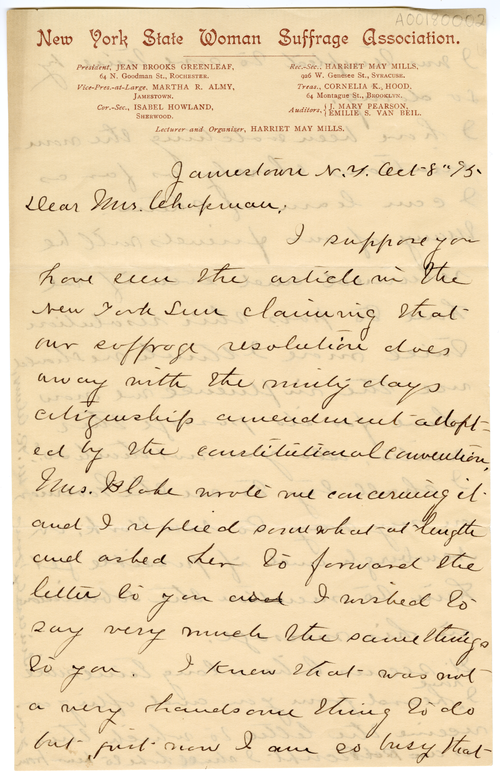 A00180002
New York State Woman Suffrage Association.
President, JEAN BROOKS GREENLEAF,
64 N. Goodman St., ROCHESTER.
Vice-Pres.-at-Large, MARTHA R. ALMY,
JAMESTOWN.
Cor.-Sec., ISABEL HOWLAND,
SHERWOOD.
Rec.-Sec., HARRIET MAY MILLS,
926 W. Genesee St., SYRACUSE.
Treas., CORNELIA K. HOOD,
64 Montague St., BROOKLYN.
Auditors, { J. MARY PEARSON,
EMILIE S. VAN BEIL.
Lecturer and Organizer, HARRIET MAY MILLS.
Jamestown N.Y. Oct 8" 95
Dear Mrs. Chapman;
I suppose you
have seen the article in the
New York Sun claiming that
our suffrage resolution does
away with the ninty days
citizenship amendment adopt-
ed by the constitutional convention.
Mrs. Blake wrote me concerning it
and I replied somewhat at length
and asked her to forward the
letter to you and I wished to
say very much the same things
to you. I knew that was not
a very handsome thing to do
but just now I am so busy that